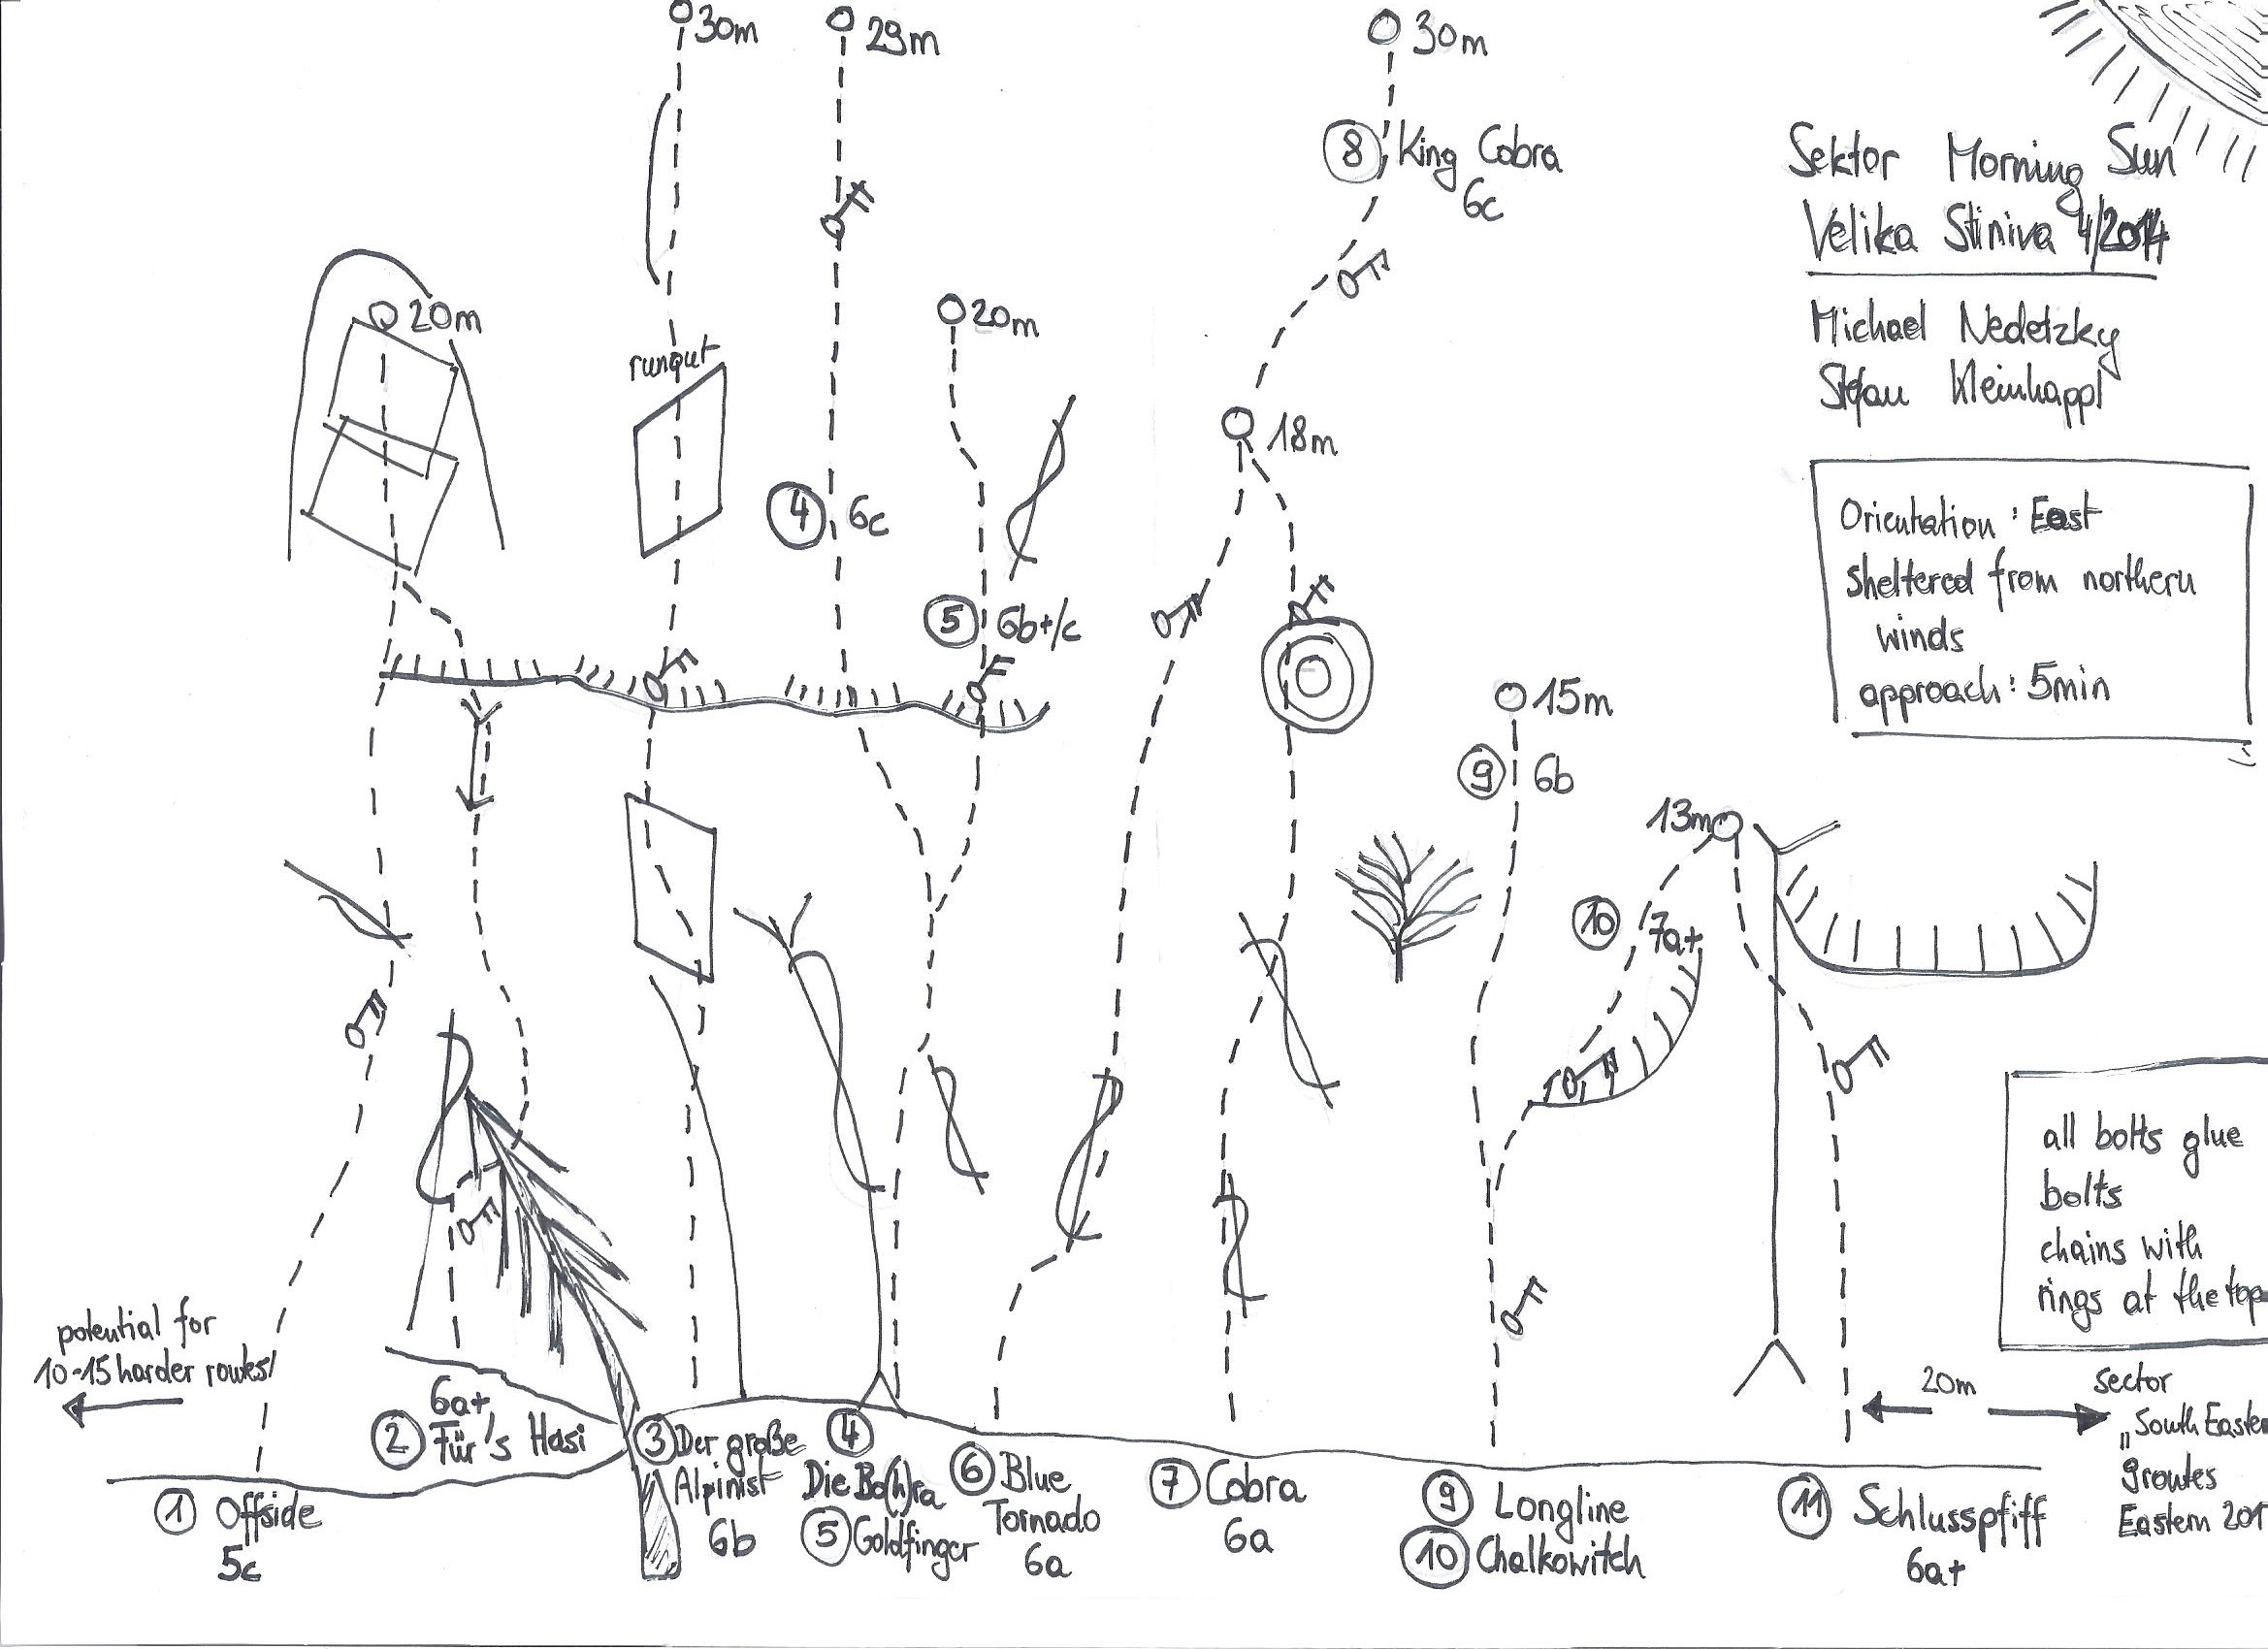 30m
29m
30m
8 King Cobra
6c
Sektor Morning Sun
Velika Stiniva 4/2014
Michael Nedetzky
Stefan Kleinhappl
20m
20m
runout
18m
4 6c
5 6b+/c
Orientation : East
sheltered from northern
winds
approach : 5min
15m
9 6b
13m
10 7a+
all bolts glue
bolts
chains with
rings at the top
potential for
10-15 harder routes!
20m
sector
„South Easter
9routes
Eastern 201
1 Offside
5c
6a+
2 Für's Hasi
3 Der große
Alpinist
6b
4
Die Bo(h)ra
5 Goldfinger
6 Blue
Tornado
6a
7 Cobra
6a
9 Longline
10 Chalkowitch
11 Schlusspfiff
6a+